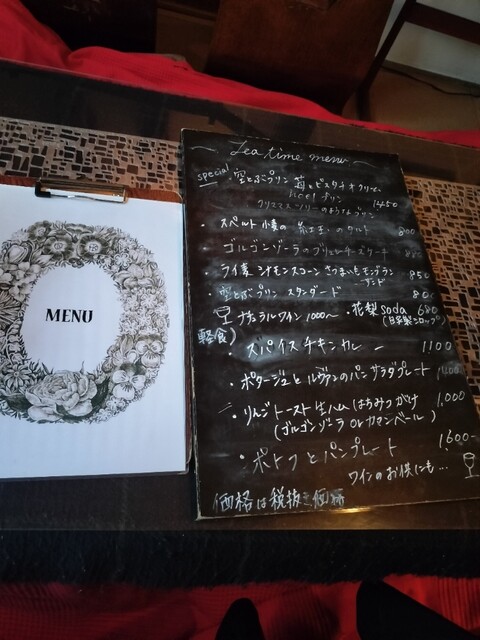 MENU
Tea time menu
special 空とぶプリン 苺とピスタチオクリーム
noel プリン
クリスマスツリーのようなプリン 1450
・スペルト小麦の 紅玉のタルト 800
・ゴルゴンゾーラのブリュレチーズケーキ
・ライ麦シナモンスコーン さつまいもモンブラン 850
サンド
・空とぶプリン スタンダード 800
ナチュラルワイン 1000〜 ・花梨soda 680
(自家製シロップ)
軽食)
・スパイスチキンカレー 1100
・ポタージュとルヴァンのパン サラダプレート 1400
・りんごトースト 生ハム はちみつがけ 1,000
(ゴルゴンゾーラ or カマンベール)
・ポトフとパンプレート 1,600-
ワインのお供にも…
価格は税抜き価格